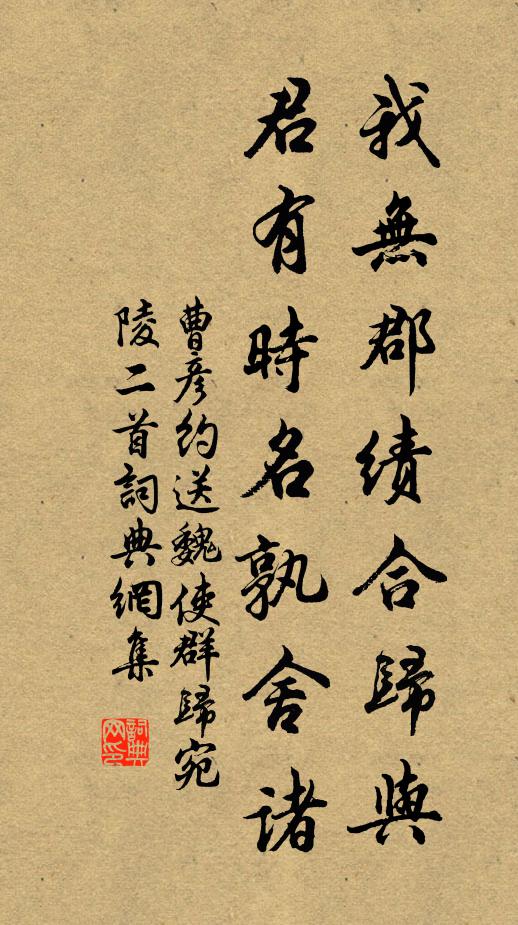 我無郡績合歸與
君有時名孰舍諸
曹彦約送魏使群歸宛
陵二首詞典網集
詞典網印